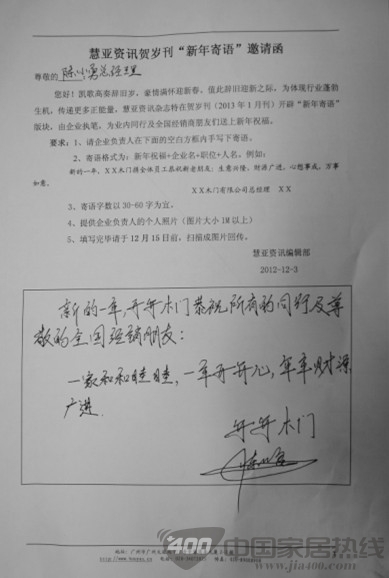 慧亚资讯贺岁刊“新年寄语”邀请函
尊敬的 陈小勇总经理
您好！凯歌高奏辞旧岁，豪情满怀迎新春。值此辞旧迎新之际，为体现行业蓬勃
生机，传递更多正能量，慧亚资讯杂志特在贺岁刊（2013年1月刊）开辟“新年寄语”
版块，由企业执笔，为业内同行及全国经销商朋友们送上新年祝福。
要求：1、请企业负责人在下面的空白方框内手写下寄语。
2、寄语格式为：新年祝福+企业名+职位+人名，例如：
新的一年，XX木门携全体员工恭祝新老朋友：生意兴隆，财源广进，心想事成，万事
如意。
XX木门有限公司总经理 XX
3、寄语字数以30-60字为宜。
4、提供企业负责人的个人照片（图片大小1M以上）
5、填写完毕请于12月15日前，扫描成图片回传。
慧亚资讯编辑部
2012-12-3
新的一年，开开木门恭祝所有的同行及尊
敬的全国经销朋友：
一家和和睦睦，一年开开心，年年财源
广进
开开木门
400 中国家居热线
www.jia400.com